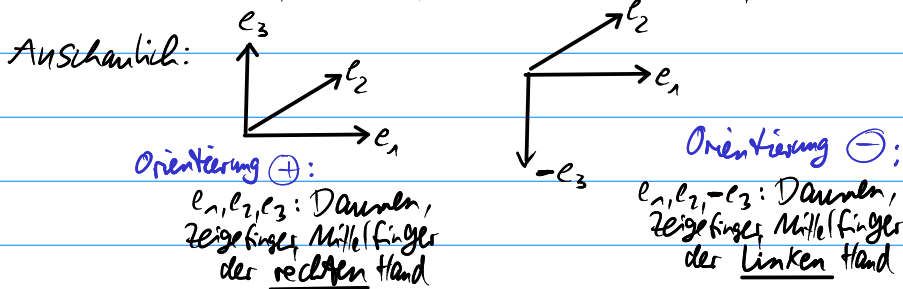 Anschaulich:
e₃
e₂
e₁
Orientierung ⊕:
e₁, e₂, e₃: Daumen,
Zeigefinger, Mittelfinger
der rechten Hand
e₂
e₁
-e₃
Orientierung ⊖:
e₁, e₂, -e₃: Daumen,
Zeigefinger, Mittelfinger
der linken Hand